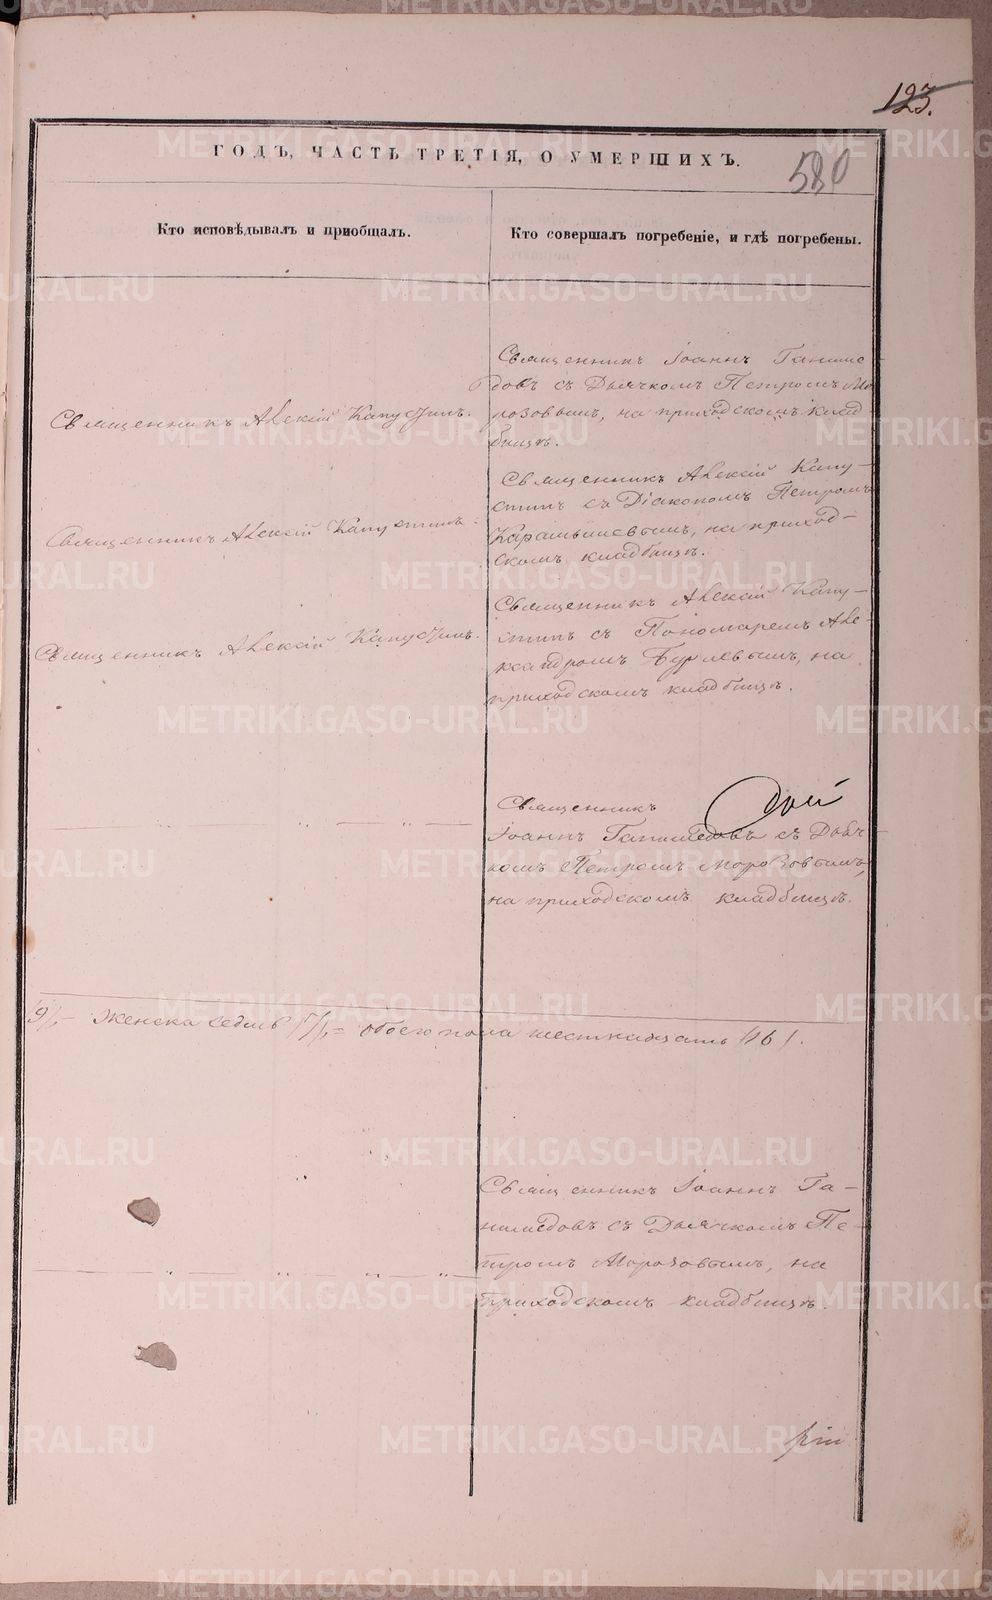 123.
ГОДЪ, ЧАСТЬ ТРЕТІЯ, О УМЕРШИХЪ.
580
Кто исповѣдывалъ и приобщалъ.
Кто совершалъ погребеніе, и гдѣ погребены.
Священникъ Алексій Капустинъ.
Священникъ Іоаннъ Ганиме-
довъ съ Дьячкомъ Петромъ Мо
розовымъ, на приходскомъ клад-
бищѣ.
Священникъ Алексій Капустинъ.
Священникъ Алексій Капу-
стинъ съ Діакономъ Петромъ
Карамышевымъ, на приход-
скомъ кладбищѣ.
Священникъ Алексій Капустинъ.
Священникъ Алексій Капу-
стинъ съ Пономаремъ Але-
ксандромъ Бурлевымъ, на
приходскомъ кладбищѣ.
Священникъ
Іоаннъ Ганимедовъ съ Дьяч-
комъ Петромъ Морозовымъ,
на приходскомъ кладбищѣ.
/9/,- Женска седмь /7/,= обоего пола шестнадцать /16/.
Священникъ Іоаннъ Га-
нимедовъ съ Дьячкомъ Пе-
тромъ Морозовымъ, на
приходскомъ кладбищѣ.
METRIKI.GASO-URAL.RU